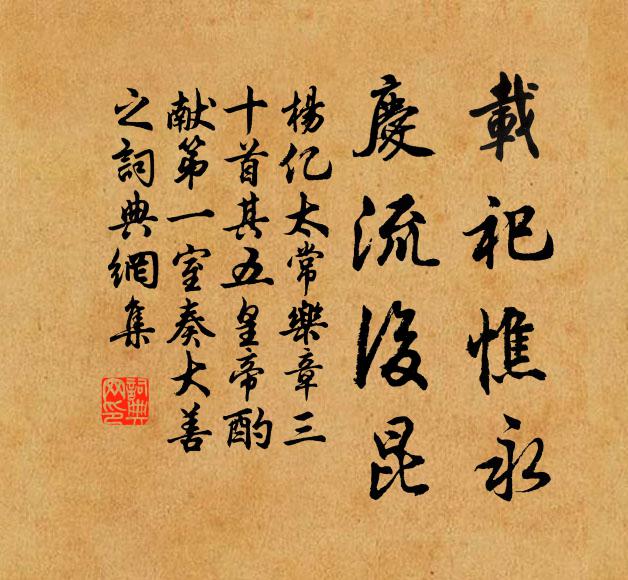 載祀惟永
慶流後昆
楊亿太常樂章三
十首其五皇帝酌
献第一室奏大善
之詞典網集
詞典网印